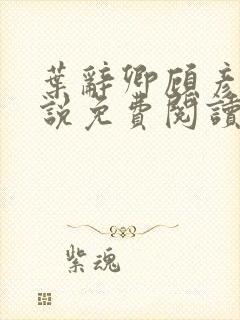 葉辭卿顧彥
說免費閱讀
紫魂